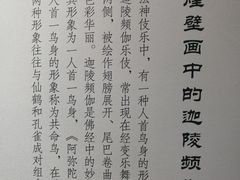 煌壁画中的迦陵频
法神伎乐中，有一种人首鸟身的形
迦陵频伽伎乐，常出现在经变乐舞
两侧，被绘作翅膀展开、尾巴卷曲
色彩华丽。迦陵频伽是佛经中的妙
其形象为一人首一鸟身，《阿弥陀
人首一鸟身的形象称为共命鸟，在
两种形象往往与仙鹤和孔雀成对组